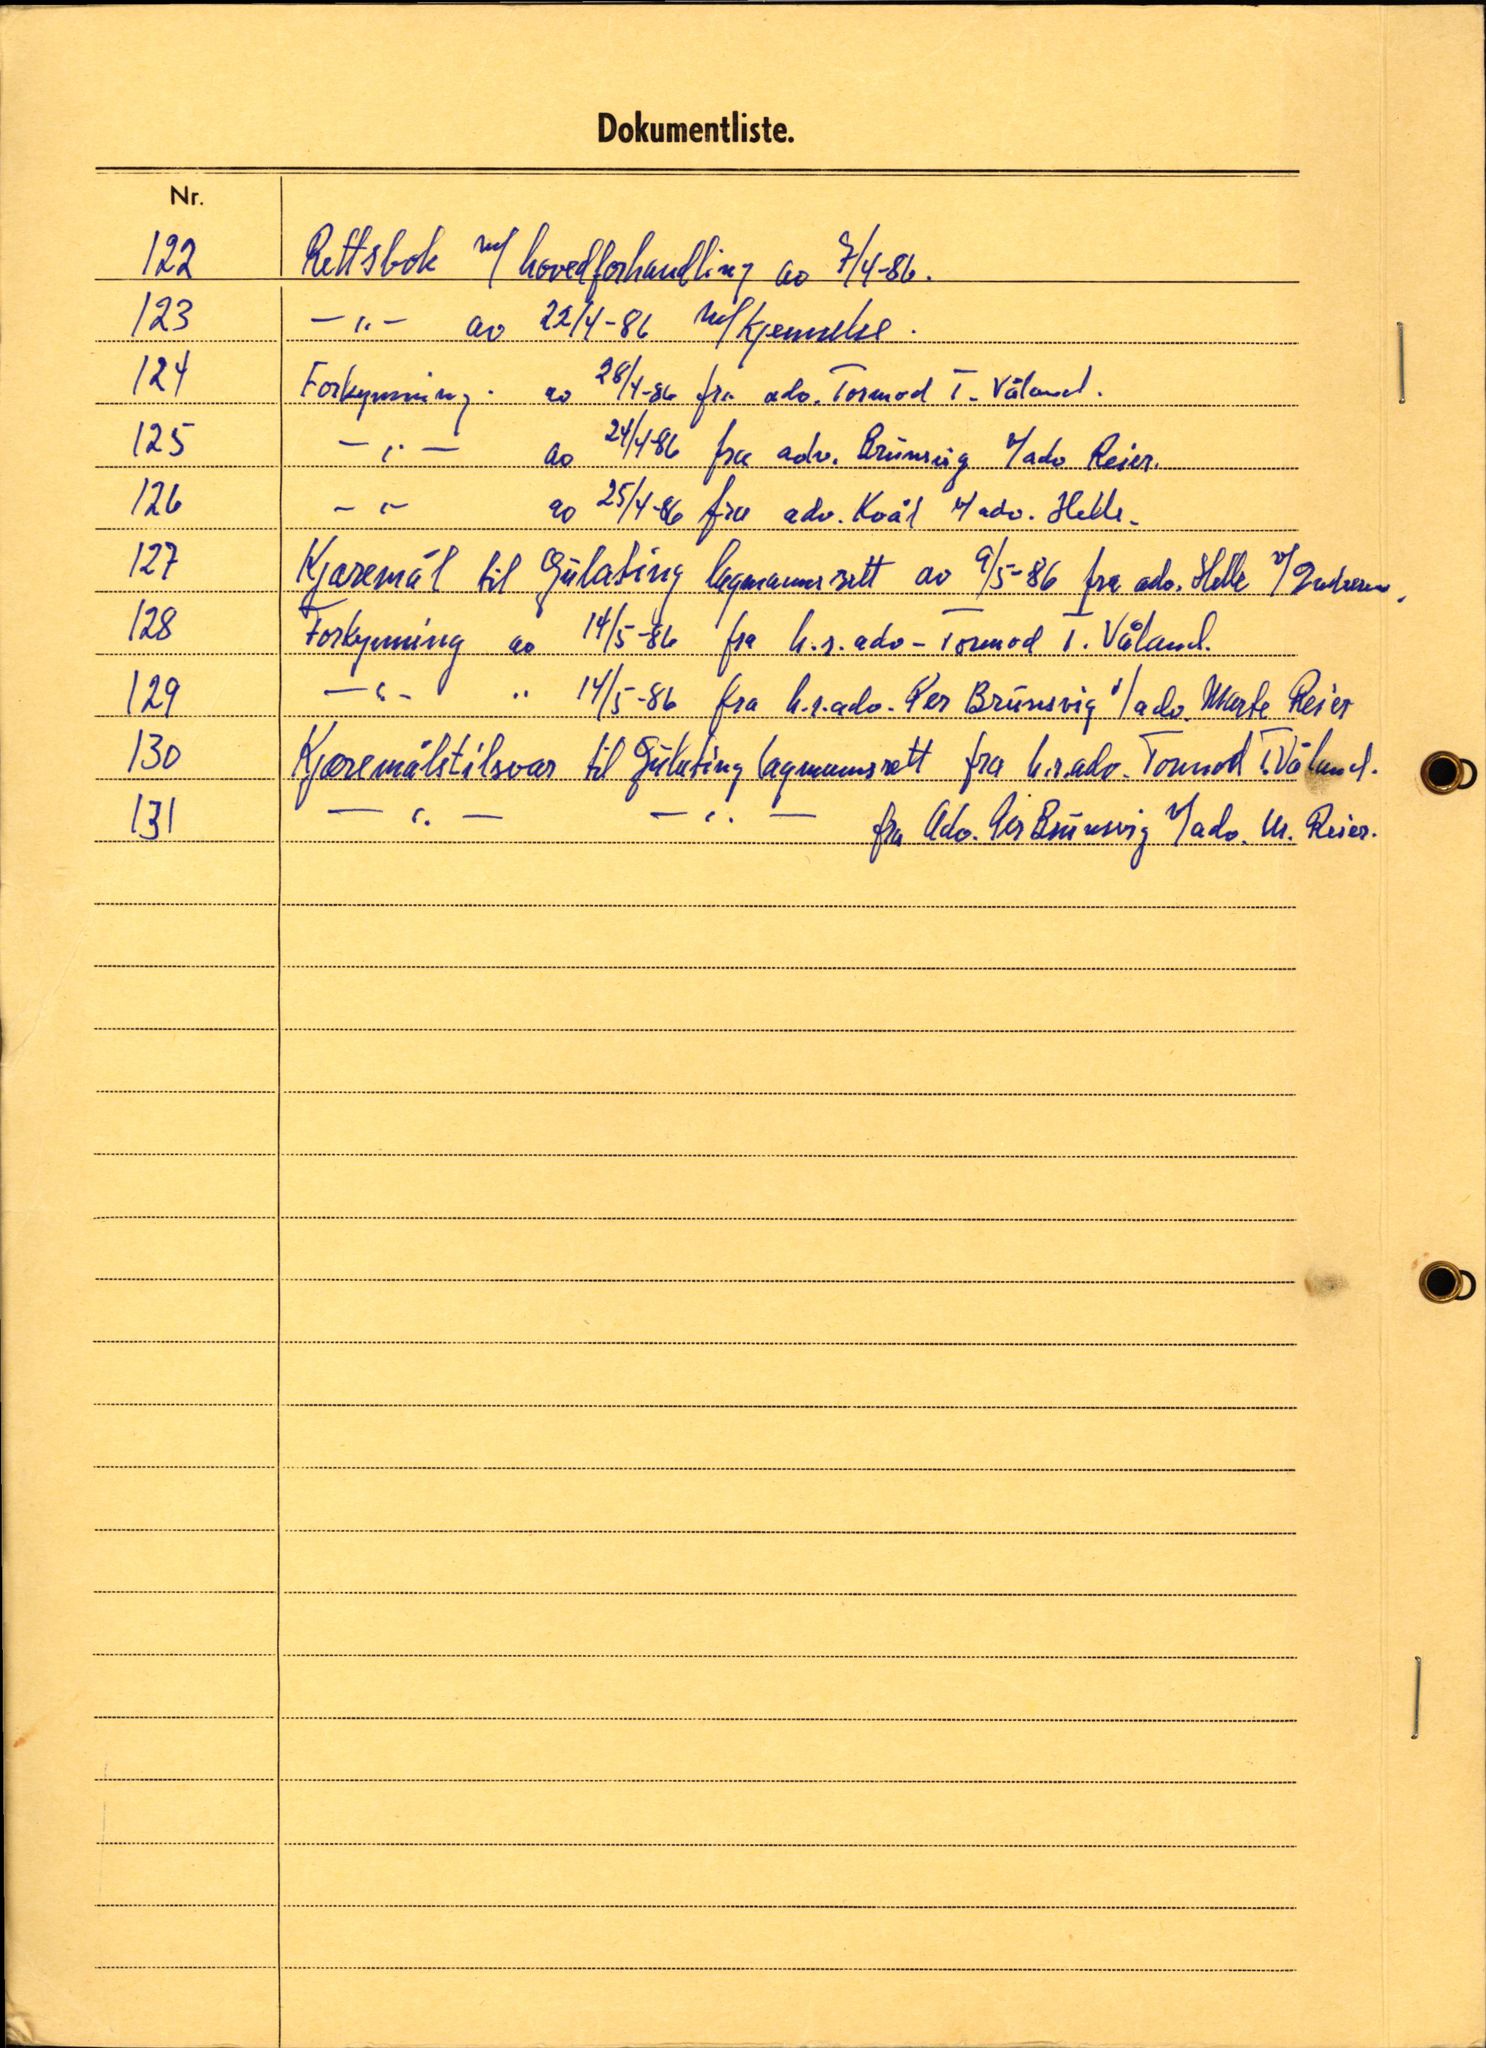 Dokumentliste.
Nr.
122 Rettsbok m/ hovedforhandling av 7/4-86.
123 — " — av 22/4-86 m/kjennelse.
124 Forkynning av 28/4-86 fra adv. Tormod T. Våland.
125 — " — av 24/4-86 fra adv. Brünsvig v/adv Reier.
126 — " — av 25/4-86 fra adv. Kvål v/adv. Helle.
127 Kjæremål til Gulating lagmannsrett av 9/5-86 fra adv. Helle v/
128 Forkynning av 14/5-86 fra h.r.adv. Tormod T. Våland.
129 — " — " 14/5-86 fra h.r.adv. Per Brünsvig v/adv. Marte Reier
130 Kjæremålstilsvar til Gulating lagmannsrett fra h.r.adv. Tormod T. Våland.
131 — " — — " — fra Adv. Per Brünsvig v/adv. M. Reier.